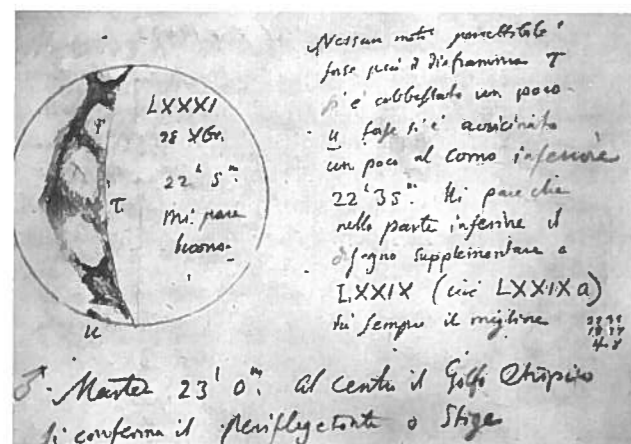 LXXXI
28 Xbr.
22ʰ 5ᵐ.
Mi pare
buono.
φ
τ
u
Nessun moto percettibile
forse però il diaframma τ
si è un poco
u forse si è avvicinato
un poco al corno inferiore
22ʰ 35ᵐ. Mi pare che
nella parte inferiore il
disegno supplementare a
LXXIX (cioè LXXIX a)
sia sempre il migliore
♂. Marte 23ʰ 0ᵐ. al centro il Golfo
Si conferma il o Stige